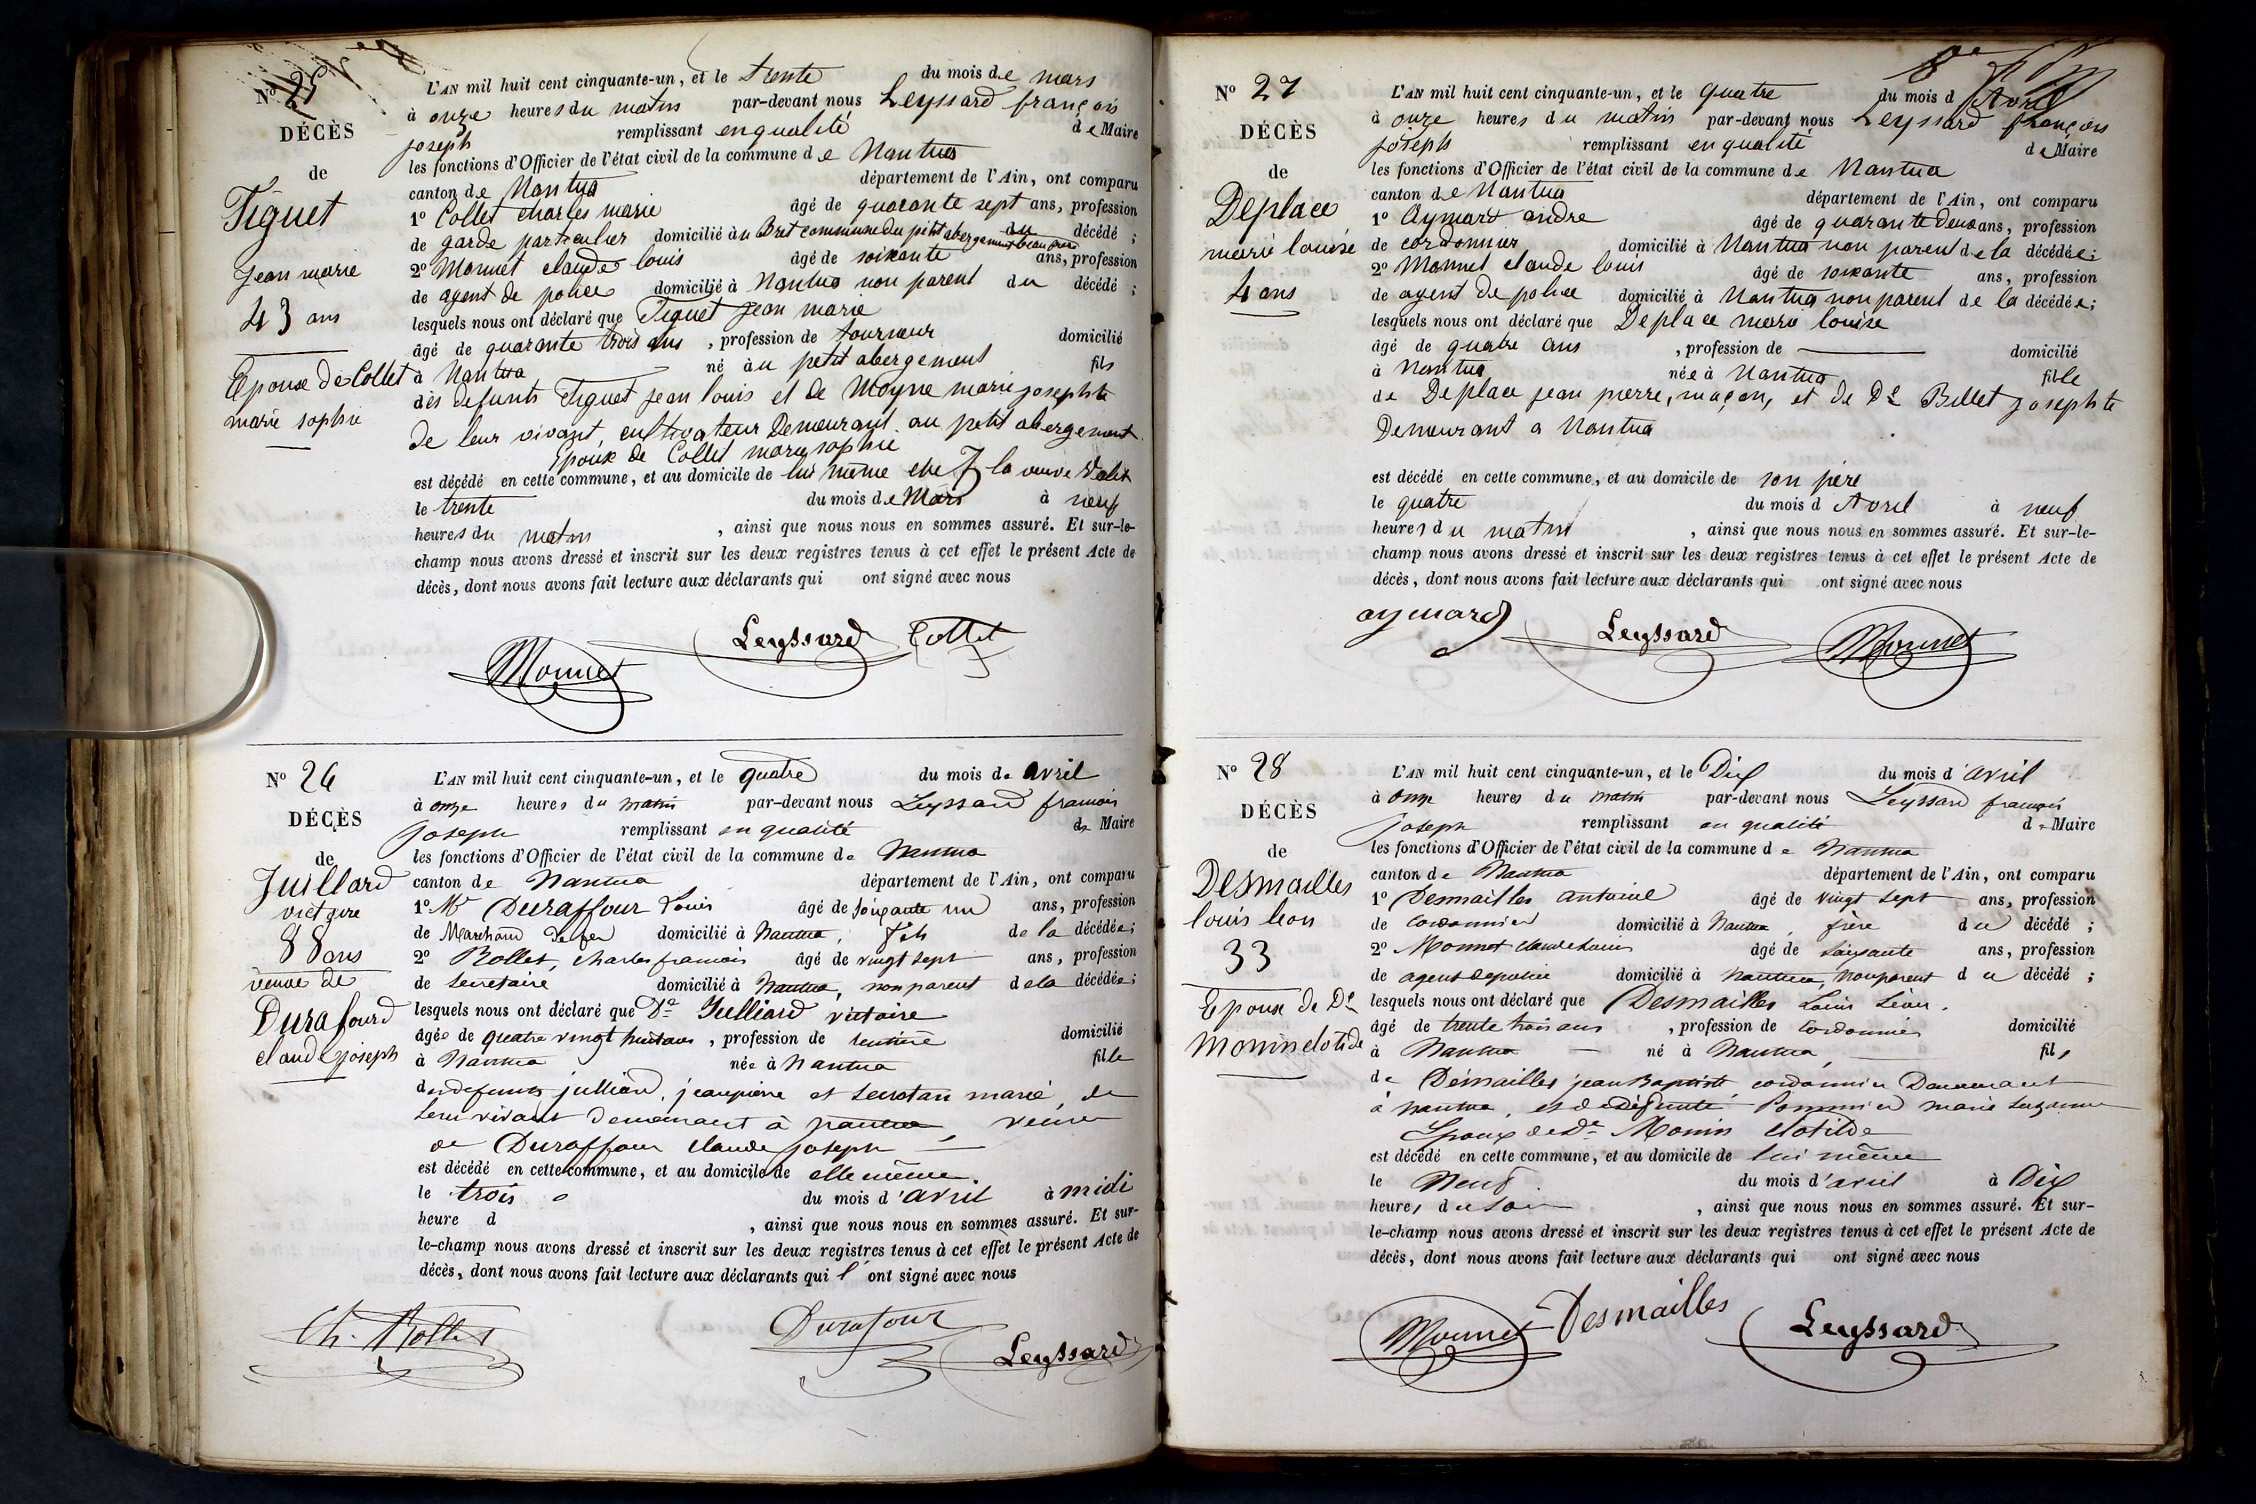 Nº 25
DÉCÈS
de
Tiguet
Jean marie
43 ans
Epoux de Collet
marie sophie
L'AN mil huit cent cinquante-un, et le trente du mois de mars
à onze heures du matin par-devant nous Leyssard françois
joseph remplissant en qualité de Maire
les fonctions d'Officier de l'état civil de la commune de Nantua
canton de Nantua département de l'Ain, ont comparu
1º Collet charles marie âgé de quarante sept ans, profession
de garde particulier domicilié à u Bret commune du petit abergement beau frère du décédé ;
2º Monnet claude louis âgé de soixante ans, profession
de agent de police domicilié à Nantua non parent du décédé ;
lesquels nous ont déclaré que Tiguet Jean marie
âgé de quarante trois ans , profession de tourneur domicilié
à Nantua né au petit abergement fils
des defunts Tiguet jean louis et de Moyne marie josephte
de leur vivant, cultivateur Demeurant au petit abergement
Epoux de Collet marie sophie
est décédé en cette commune, et au domicile de lui même chez la veuve
le trente du mois de Mars à neuf
heures du matin , ainsi que nous nous en sommes assuré. Et sur-le-
champ nous avons dressé et inscrit sur les deux registres tenus à cet effet le présent Acte de
décès, dont nous avons fait lecture aux déclarants qui ont signé avec nous
Leyssard Collet
Monnet
Nº 26
DÉCÈS
de
Juillard
victoire
88 ans
veuve de
Durafourd
claude joseph
L'AN mil huit cent cinquante-un, et le quatre du mois de avril
à onze heures du matin par-devant nous Leyssard francois
joseph remplissant en qualité de Maire
les fonctions d'Officier de l'état civil de la commune de Nantua
canton de Nantua département de l'Ain, ont comparu
1º Mr Duraffour Louis âgé de soixante un ans, profession
de Marchand de fer domicilié à Nantua, fils de la décédée;
2º Rollet, charles francois âgé de vingt sept ans, profession
de secretaire domicilié à Nantua, non parent de la décédée;
lesquels nous ont déclaré que De Julliard victoire
âgée de quatre vingt huit ans , profession de rentière domicilié
à Nantua née à Nantua fille
des defunts julliard, jean pierre et Secretan marie, de
leur vivant demeurant à Nantua, veuve
de Duraffour claude joseph
est décédé en cette commune, et au domicile de elle même.
le trois du mois d'avril à midi
heure d , ainsi que nous nous en sommes assuré. Et sur-
le-champ nous avons dressé et inscrit sur les deux registres tenus à cet effet le présent Acte de
décès, dont nous avons fait lecture aux déclarants qui l'ont signé avec nous
Ch. Rollet Durafour
Leyssard
Nº 27
DÉCÈS
de
Deplace
marie louise
4 ans
L'AN mil huit cent cinquante-un, et le quatre du mois d'Avril
à onze heures du matin par-devant nous Leyssard françois
joseph remplissant en qualité de Maire
les fonctions d'Officier de l'état civil de la commune de Nantua
canton de Nantua département de l'Ain, ont comparu
1º Aymard andre âgé de quarante deux ans, profession
de cordonnier domicilié à Nantua non parent de la décédée;
2º Monnet claude louis âgé de soixante ans, profession
de agent de police domicilié à Nantua non parent de la décédée;
lesquels nous ont déclaré que Deplace marie louise
âgé de quatre ans , profession de domicilié
à Nantua née à Nantua fille
de Deplace jean pierre, maçon, et de De Billet josephte
Demeurant a Nantua
est décédé en cette commune, et au domicile de son père
le quatre du mois d Avril à neuf
heures du matin , ainsi que nous nous en sommes assuré. Et sur-le-
champ nous avons dressé et inscrit sur les deux registres tenus à cet effet le présent Acte de
décès, dont nous avons fait lecture aux déclarants qui ont signé avec nous
aymard Leyssard Monnet
Nº 28
DÉCÈS
de
Desmailles
louis leon
33
Epoux de De
Monin clotide
L'AN mil huit cent cinquante-un, et le Dix du mois d'avril
à onze heures du matin par-devant nous Leyssard francois
joseph remplissant en qualité de Maire
les fonctions d'Officier de l'état civil de la commune de Nantua
canton de Nantua département de l'Ain, ont comparu
1º Desmailles antoine âgé de vingt sept ans, profession
de cordonnier domicilié à Nantua, frère du décédé ;
2º Monnet claude Louis âgé de soixante ans, profession
de agent de police domicilié à Nantua, non parent du décédé ;
lesquels nous ont déclaré que Desmailles Louis Léon.
âgé de trente trois ans , profession de cordonnier domicilié
à Nantua né à Nantua, fils
de Desmailles jean Baptiste cordonnier Demeurant
à nantua, et de défunte Pommier marie suzanne
Epoux de De Monin clotilde
est décédé en cette commune, et au domicile de lui même
le Neuf du mois d'avril à Dix
heures du soir , ainsi que nous nous en sommes assuré. Et sur-
le-champ nous avons dressé et inscrit sur les deux registres tenus à cet effet le présent Acte de
décès, dont nous avons fait lecture aux déclarants qui ont signé avec nous
Monnet Desmailles Leyssard